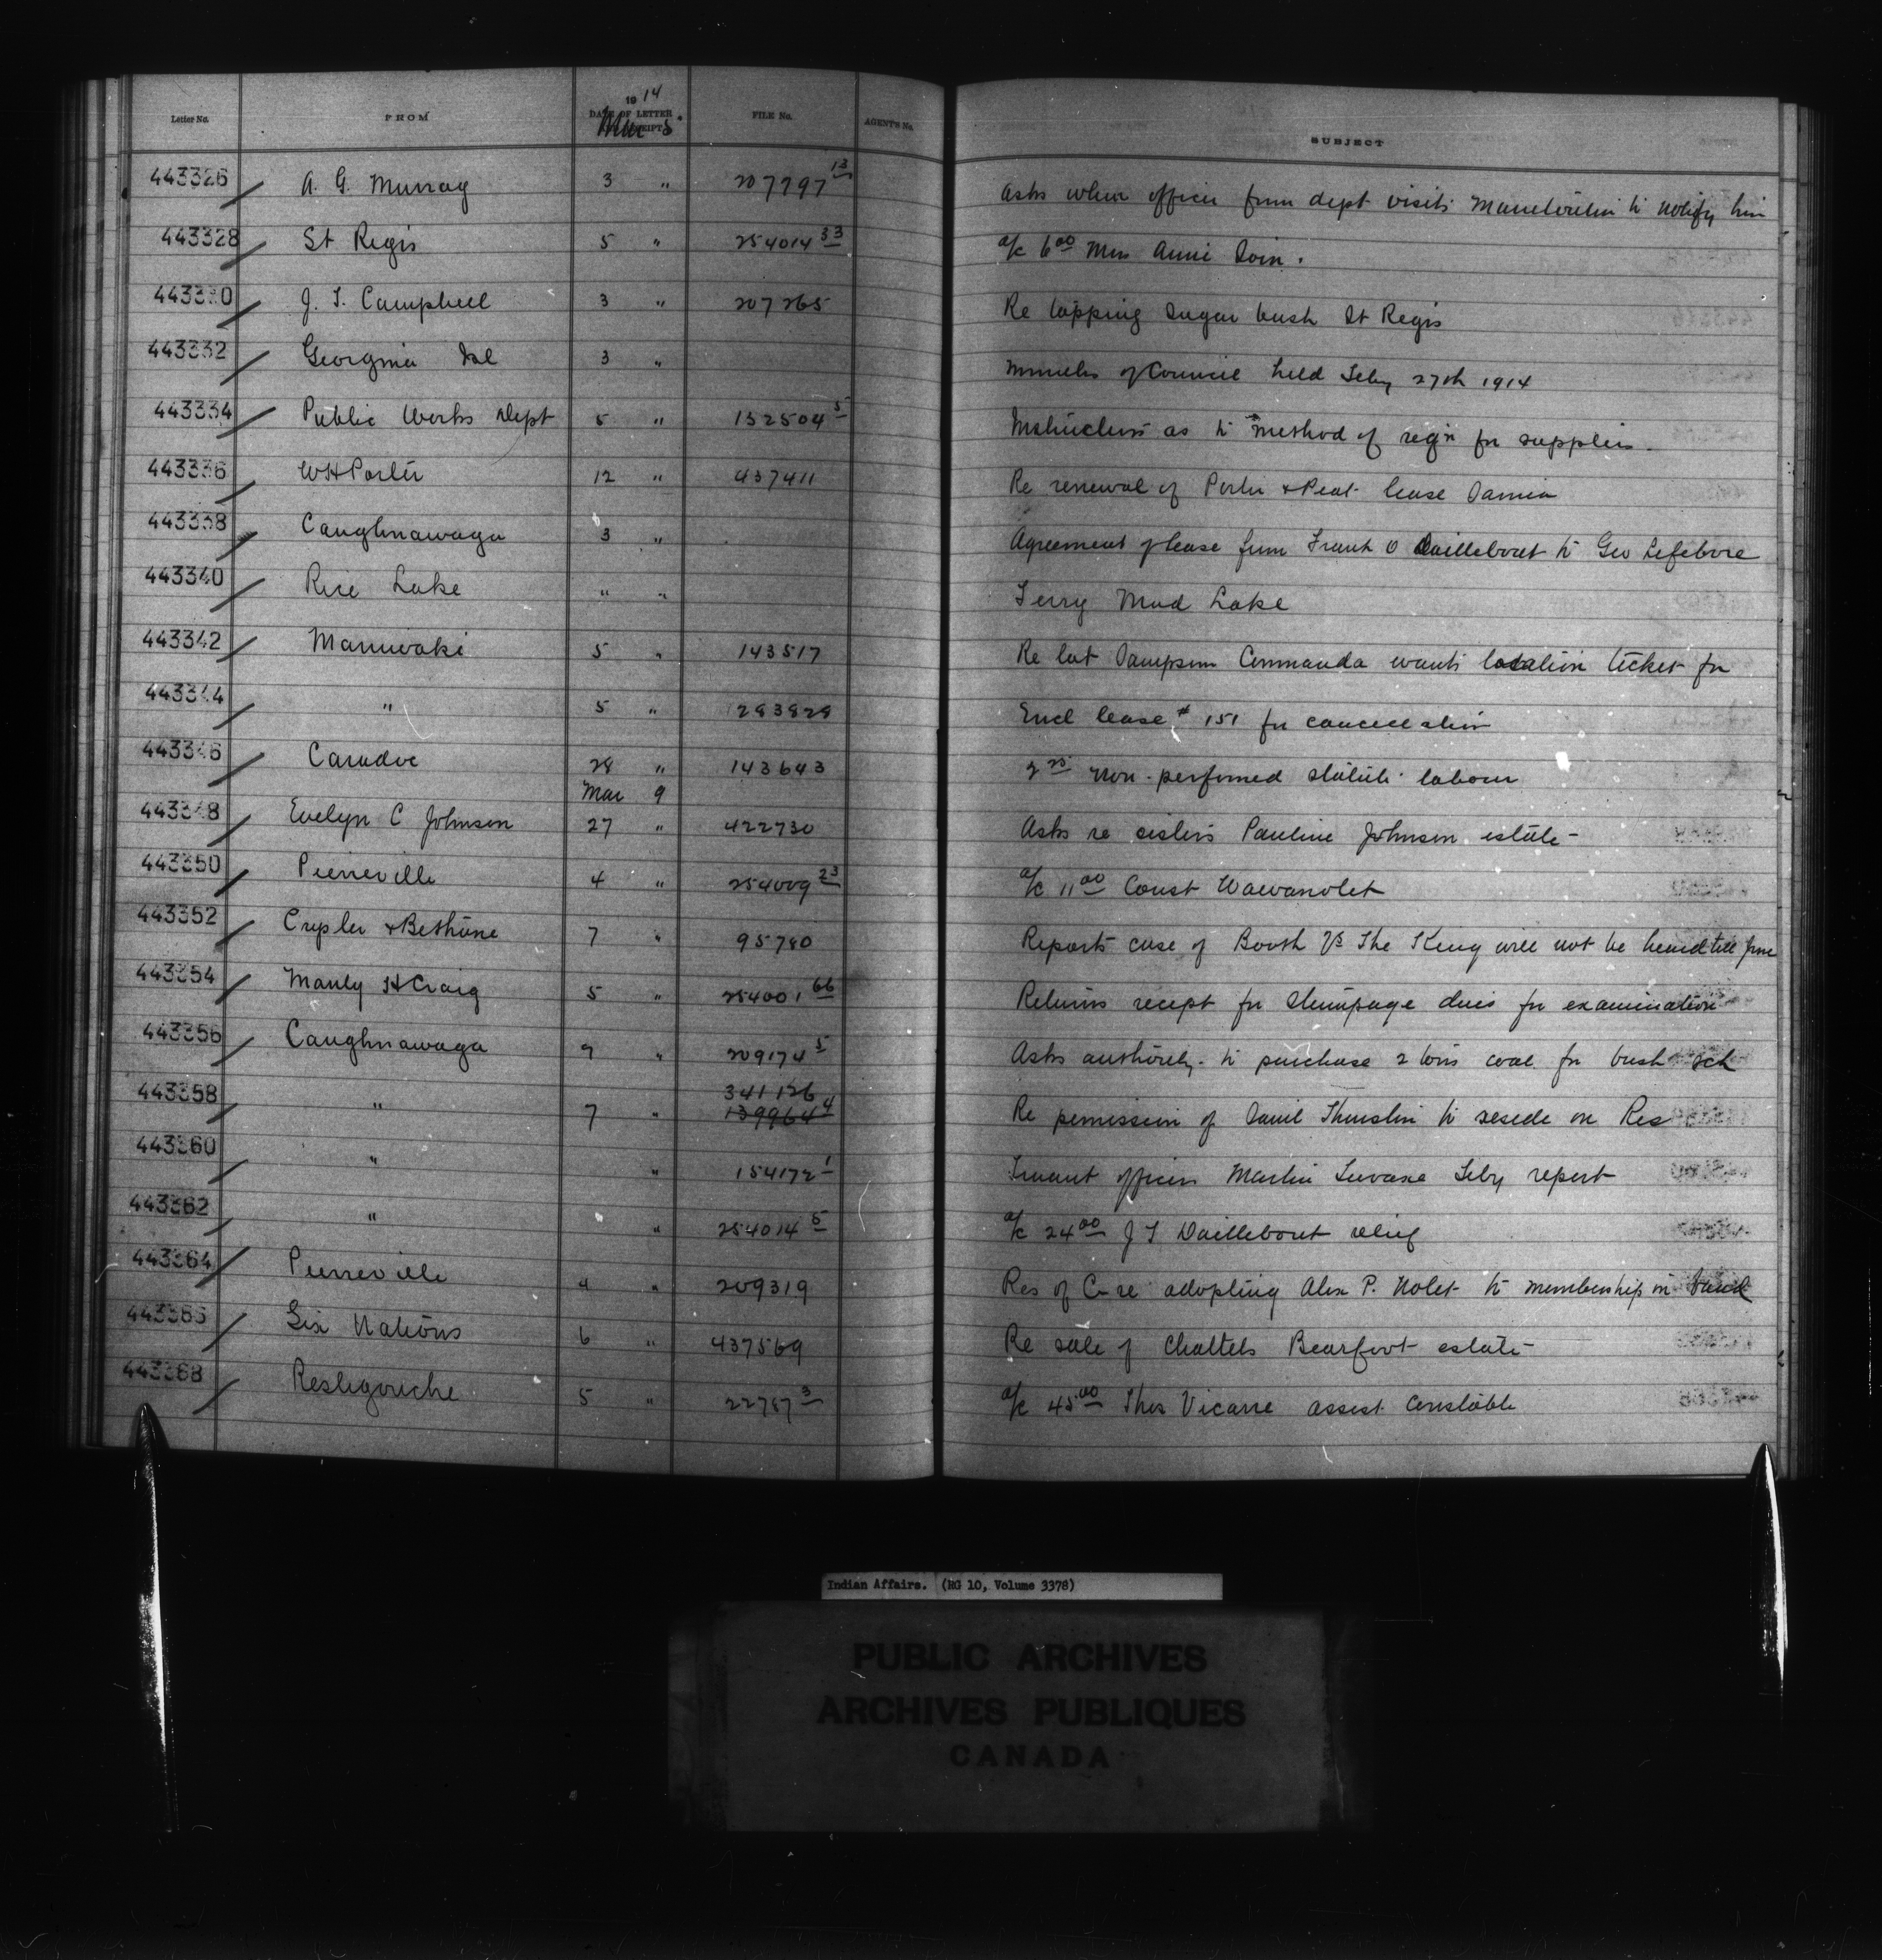 Letter No. FROM 1914 DATE OF LETTER RECEIPT Mar 5 FILE No. AGENT'S No. SUBJECT
443326 A. G. Murray 3 " 207797 13 Asks when officer from dept visits Manitoulin to notify him
443328 St Regis 5 " 254014 33 a/c 6 00 Mrs Annie Soin.
443330 J. T. Campbell 3 " 207265 Re tapping sugar bush St Regis
443332 Georgina Isl 3 " minutes of Council held Feby 27th 1914
443334 Public Works Dept 5 " 132504 5 Instructions as to method of reg'n for supplies
443336 W H Porter 12 " 437411 Re renewal of Porter & Peat lease Sarnia
443338 Caughnawaga 3 " Agreement of lease from Frank O Daillebout to Geo Lefebvre
443340 Rice Lake " " Ferry Mud Lake
443342 Maniwaki 5 " 143517 Re lot Sampson Commanda wants location ticket for
443344 " 5 " 283828 Encl lease # 151 for cancellation
443346 Caradoc 28 " 143643 non-performed statute labour
Mar 9
443348 Evelyn C Johnson 27 " 422730 Asks re sisters Pauline Johnson estate
443350 Pierreville 4 " 254009 23 a/c 11 00 Const Wawanolet
443352 Crysler & Bethune 7 " 95780 Reports case of Booth Vs The King will not be heard till June
443354 Manly H Craig 5 " 254001 66 Returns recept for stumpage dues for examination
443356 Caughnawaga 7 " 209174 5 Asks authority to purchase 2 tons coal for bush sch
443358 " 7 " 341126 139964 4 Re permission of to reside on Res
443360 " " 154172 1 Truant officer Martin Feby report
443362 " " 254014 5 a/c 24 00 J T Daillebout relief
443364 Pierreville 4 " 209319 Res of C re adopting Alex P. Nolet to membership in band
443366 Six Nations 6 " 437569 Re sale of chattels Bearfoot estate
443368 Restigouche 5 " 22787 3 a/c 45 00 Thos Vicaire assist. Constable
Indian Affairs. (RG 10, Volume 3378)
PUBLIC ARCHIVES
ARCHIVES PUBLIQUES
CANADA